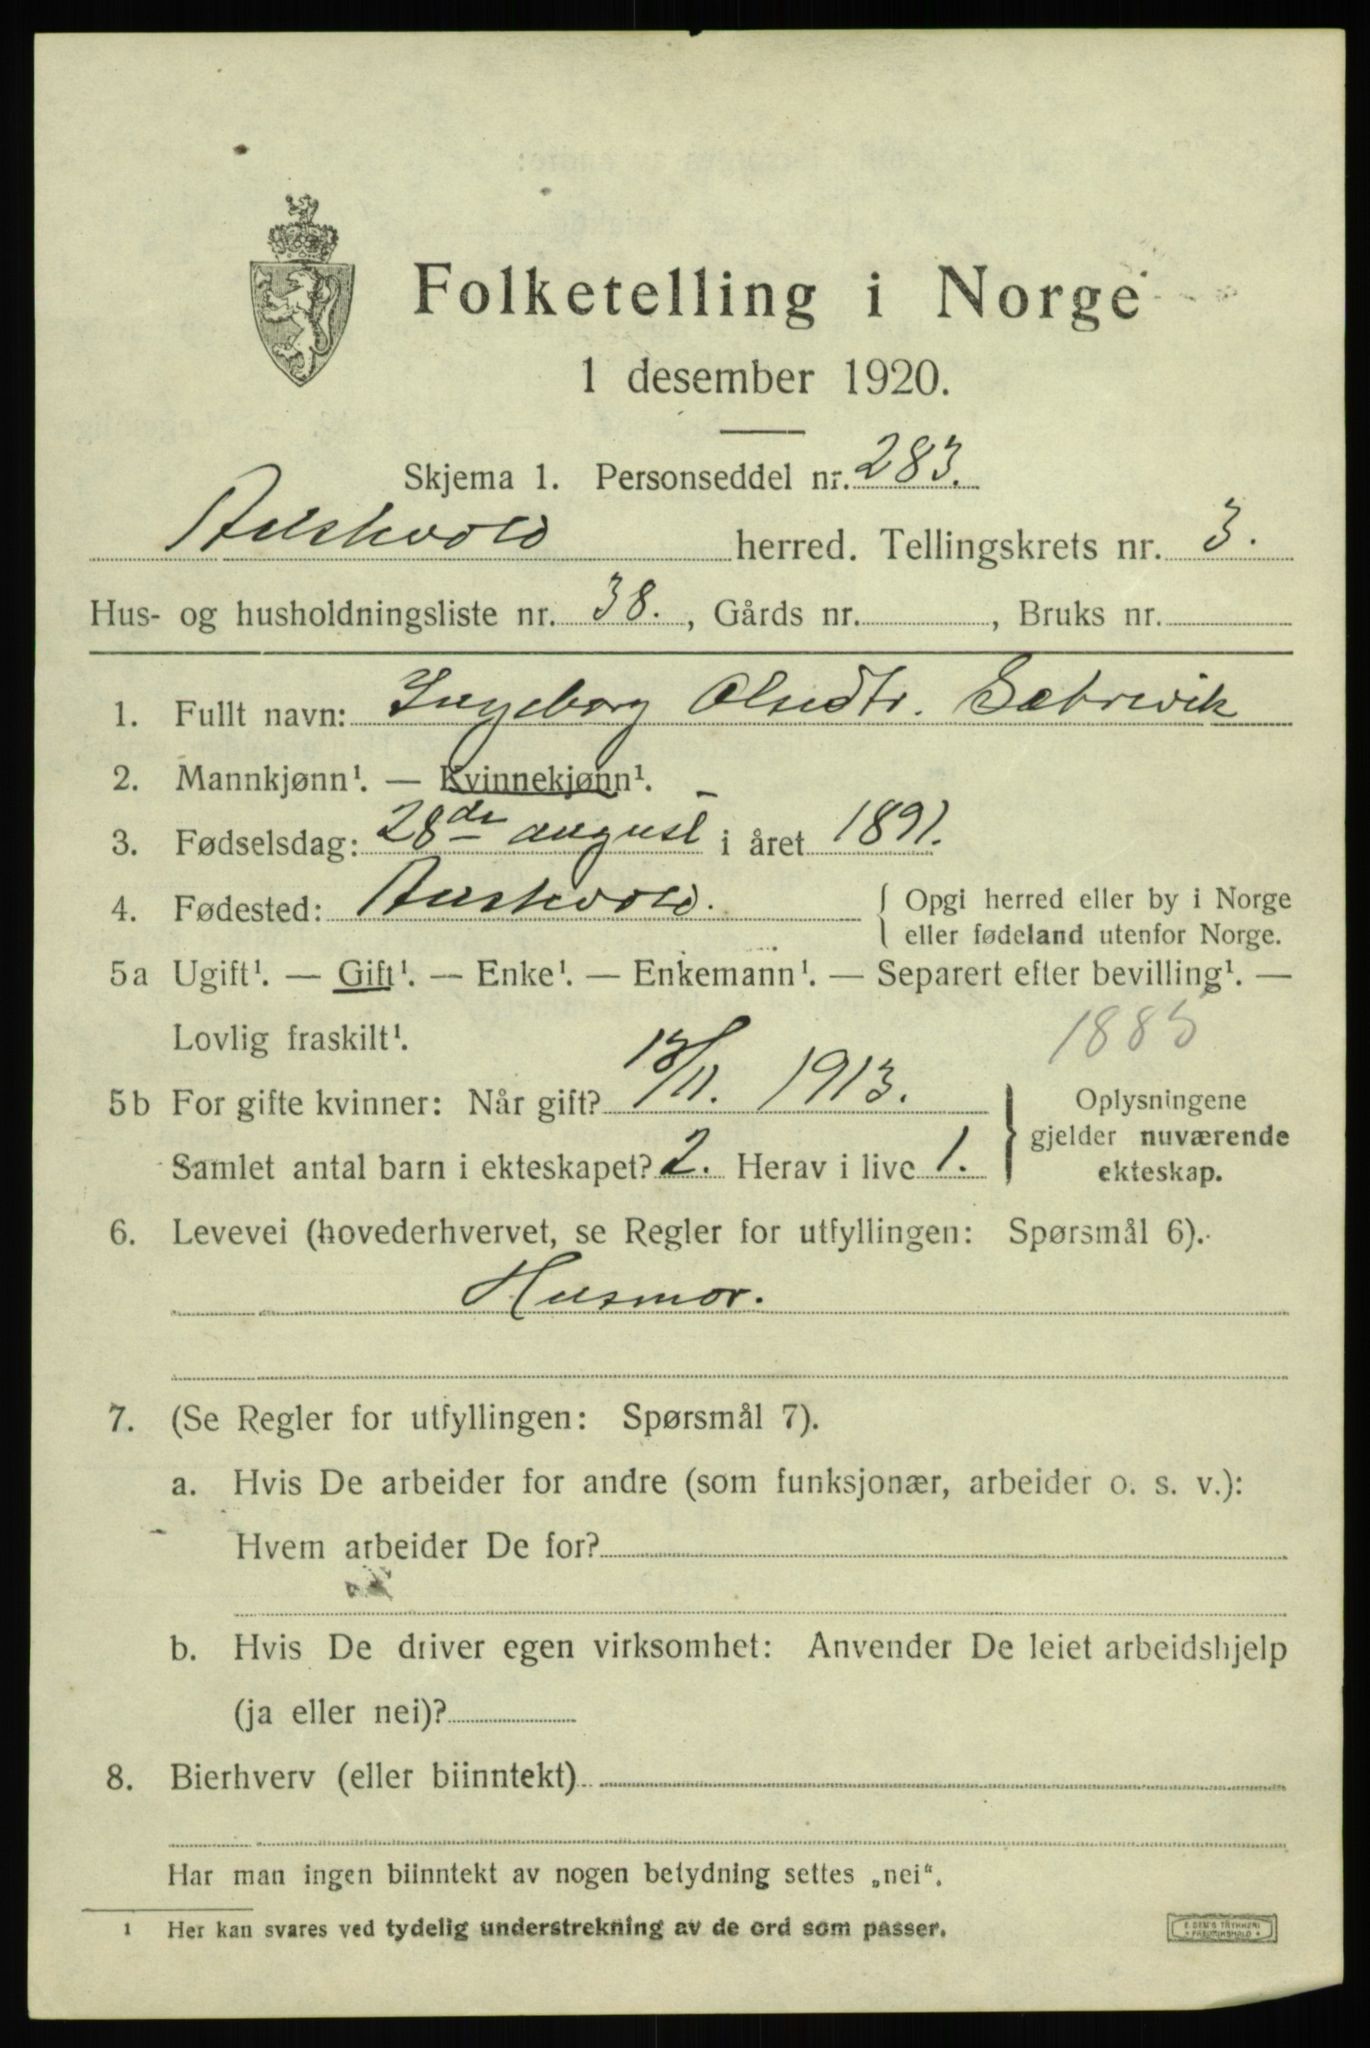 Folketelling i Norge
1 desember 1920.
Skjema 1. Personseddel nr. 283.
Austevold herred. Tellingskrets nr. 3.
Hus- og husholdningsliste nr. 38., Gårds nr. , Bruks nr.
1. Fullt navn: Ingeborg Olsedtr.
2. Mannkjønn¹. — Kvinnekjønn¹.
3. Fødselsdag: 28de august i året 1891.
4. Fødested: Austevold. { Opgi herred eller by i Norge
eller fødeland utenfor Norge.
5a Ugift¹. — Gift¹. — Enke¹. — Enkemann¹. — Separert efter bevilling¹. —
Lovlig fraskilt¹. 1885
5b For gifte kvinner: Når gift? 13/11. 1913. } Oplysningene
gjelder nuværende
Samlet antal barn i ekteskapet? 2. Herav i live 1. ekteskap.
6. Levevei (hovederhvervet, se Regler for utfyllingen: Spørsmål 6).
Husmor.
7. (Se Regler for utfyllingen: Spørsmål 7).
a. Hvis De arbeider for andre (som funksjonær, arbeider o. s. v.):
Hvem arbeider De for?
b. Hvis De driver egen virksomhet: Anvender De leiet arbeidshjelp
(ja eller nei)?
8. Bierhverv (eller biinntekt)
Har man ingen biinntekt av nogen betydning settes „nei“.
¹ Her kan svares ved tydelig understrekning av de ord som passer.